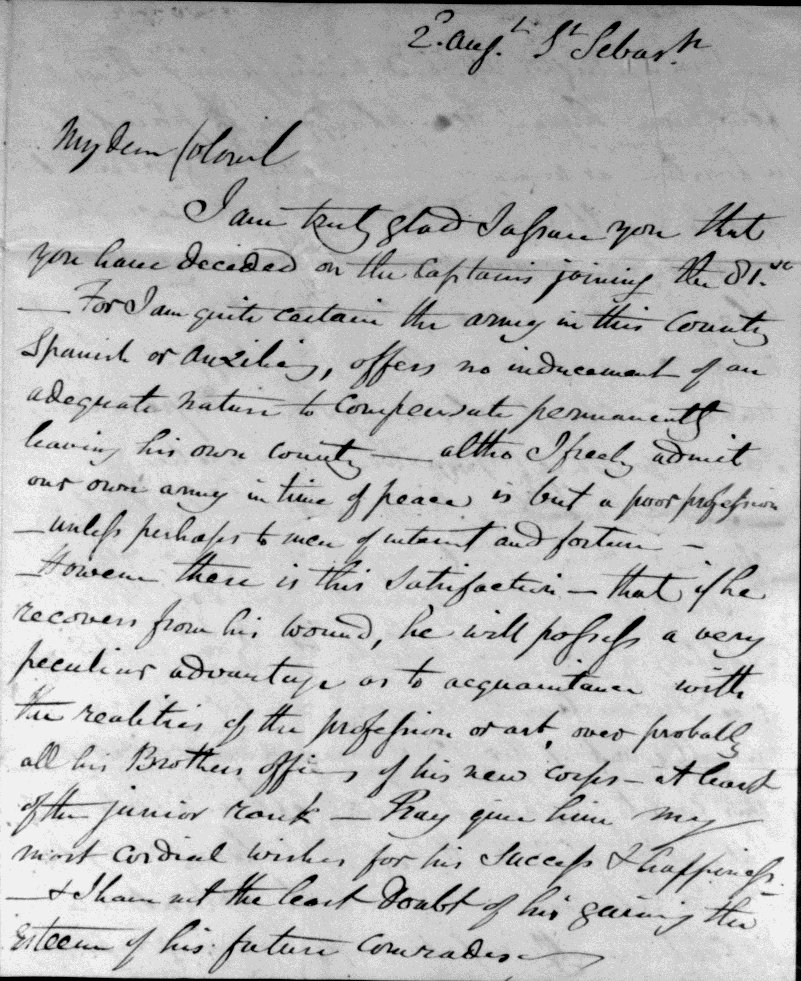 2d. Augt. St Sebastn
My dear Colonel
I am truly glad I assure you that
you have decided on the Captains joining the 81.st
— For I am quite certain the army in this Country
Spanish or Auxiliary, offers no inducement of an
adequate nature to compensate permanently
leaving his own country — altho I freely admit
our own army in time of peace is but a poor profession
— unless perhaps to men of interest and fortune —
— However there is this satisfaction — that if he
recovers from his wound, he will possess a very
peculiar advantage as to acquaintance with
the realities of the profession or art, over probably
all his Brothers officers of his new corps — at least
of the junior rank — Pray give him my
most cordial wishes for his success & happiness
— & I have not the least doubt of his gaining the
esteem of his future comrades —